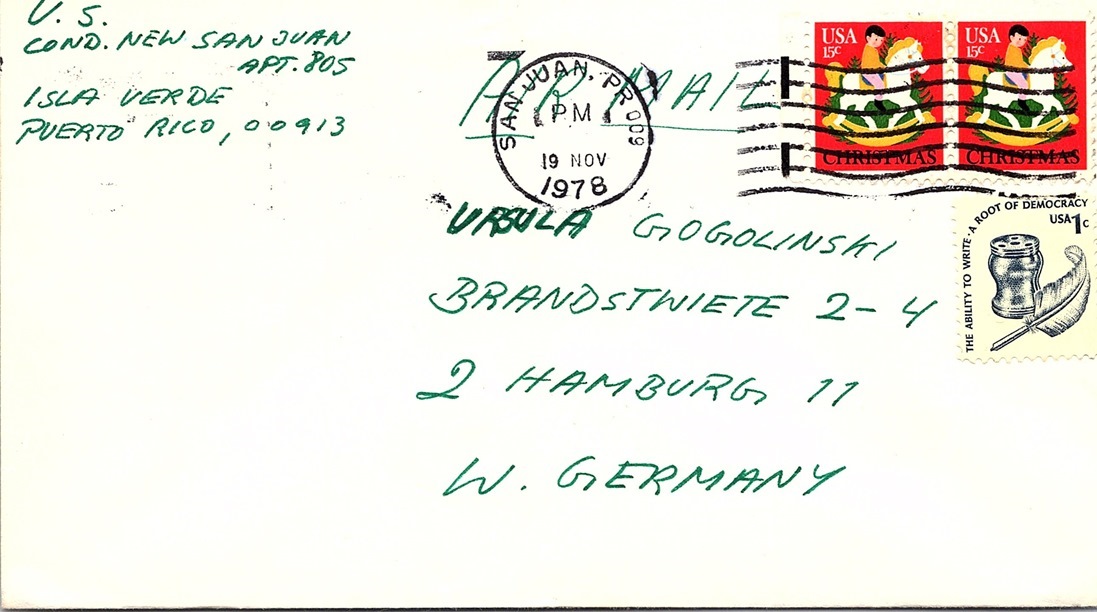 U. S.
COND. NEW SAN JUAN
APT. 805
ISLA VERDE
PUERTO RICO, 00913
AIR MAIL
SAN JUAN, PR 009
PM
19 NOV
1978
USA
15c
CHRISTMAS
USA
15c
CHRISTMAS
THE ABILITY TO WRITE · A ROOT OF DEMOCRACY
USA 1c
URSULA GOGOLINSKI
BRANDSTWIETE 2-4
2 HAMBURG 11
W. GERMANY